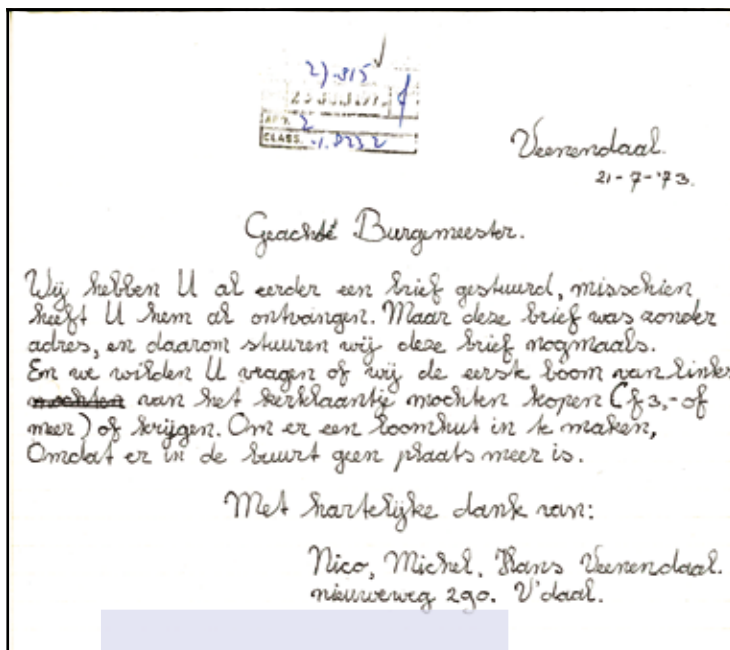 2) 815
AFD. 2
CLASS. -1.8232
Veenendaal.
21-7-'73.
Geachte Burgemeester.
Wij hebben U al eerder een brief gestuurd, misschien
heeft U hem al ontvangen. Maar deze brief was zonder
adres, en daarom stuuren wij deze brief nogmaals.
En we wilden U vragen of wij de eerste boom van links
mochten van het kerklaantje mochten kopen (f 3,- of
meer) of krijgen. Om er een boomhut in te maken,
Omdat er in de buurt geen plaats meer is.
Met hartelijke dank van:
Nico, Michel, Hans Veenendaal.
nieuweweg 290. V'daal.